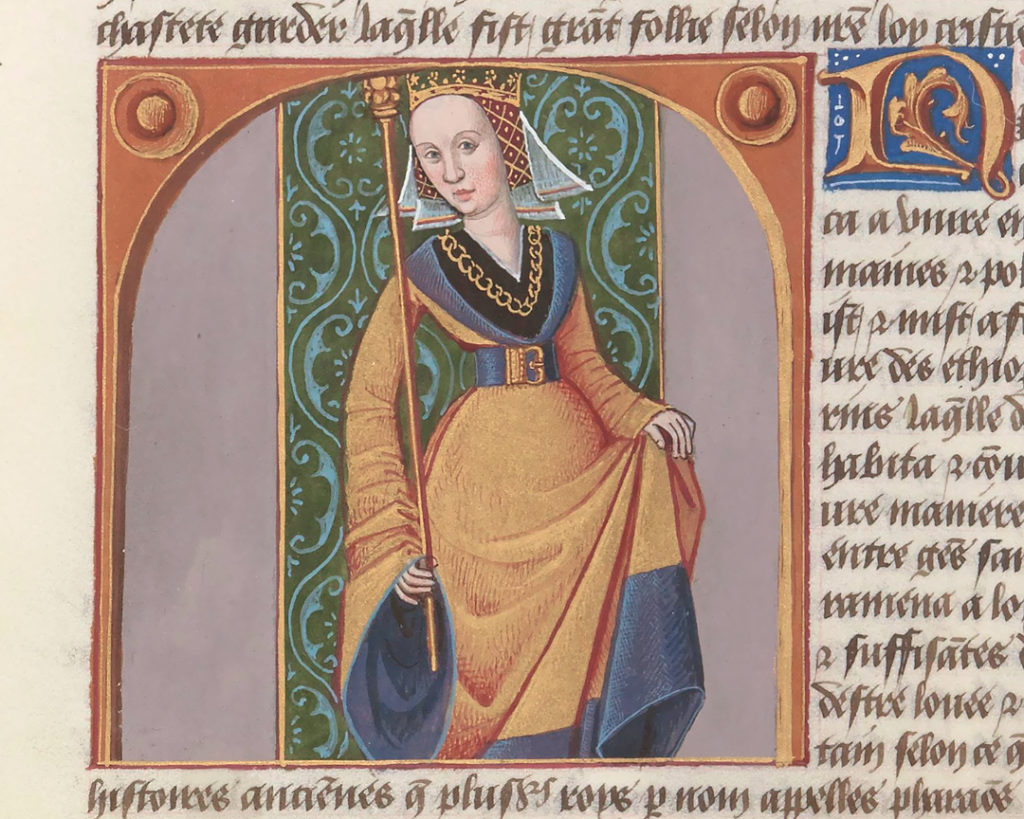 chastete garder laq̄lle fist grāt follie selon nr̄e loy cristie
N
ca a
maines ⁊ pol
ist ⁊ mist a
ure des ethio
rins laq̄lle d
habita ⁊ cōu
ure maniere
entre gēs sau
ramena a lo
⁊ suffisātes
destre louee ⁊
tain selon ce q̄
histoires anciēnes q̄ plus̄rs roys p̱ nom appelles pharaōs